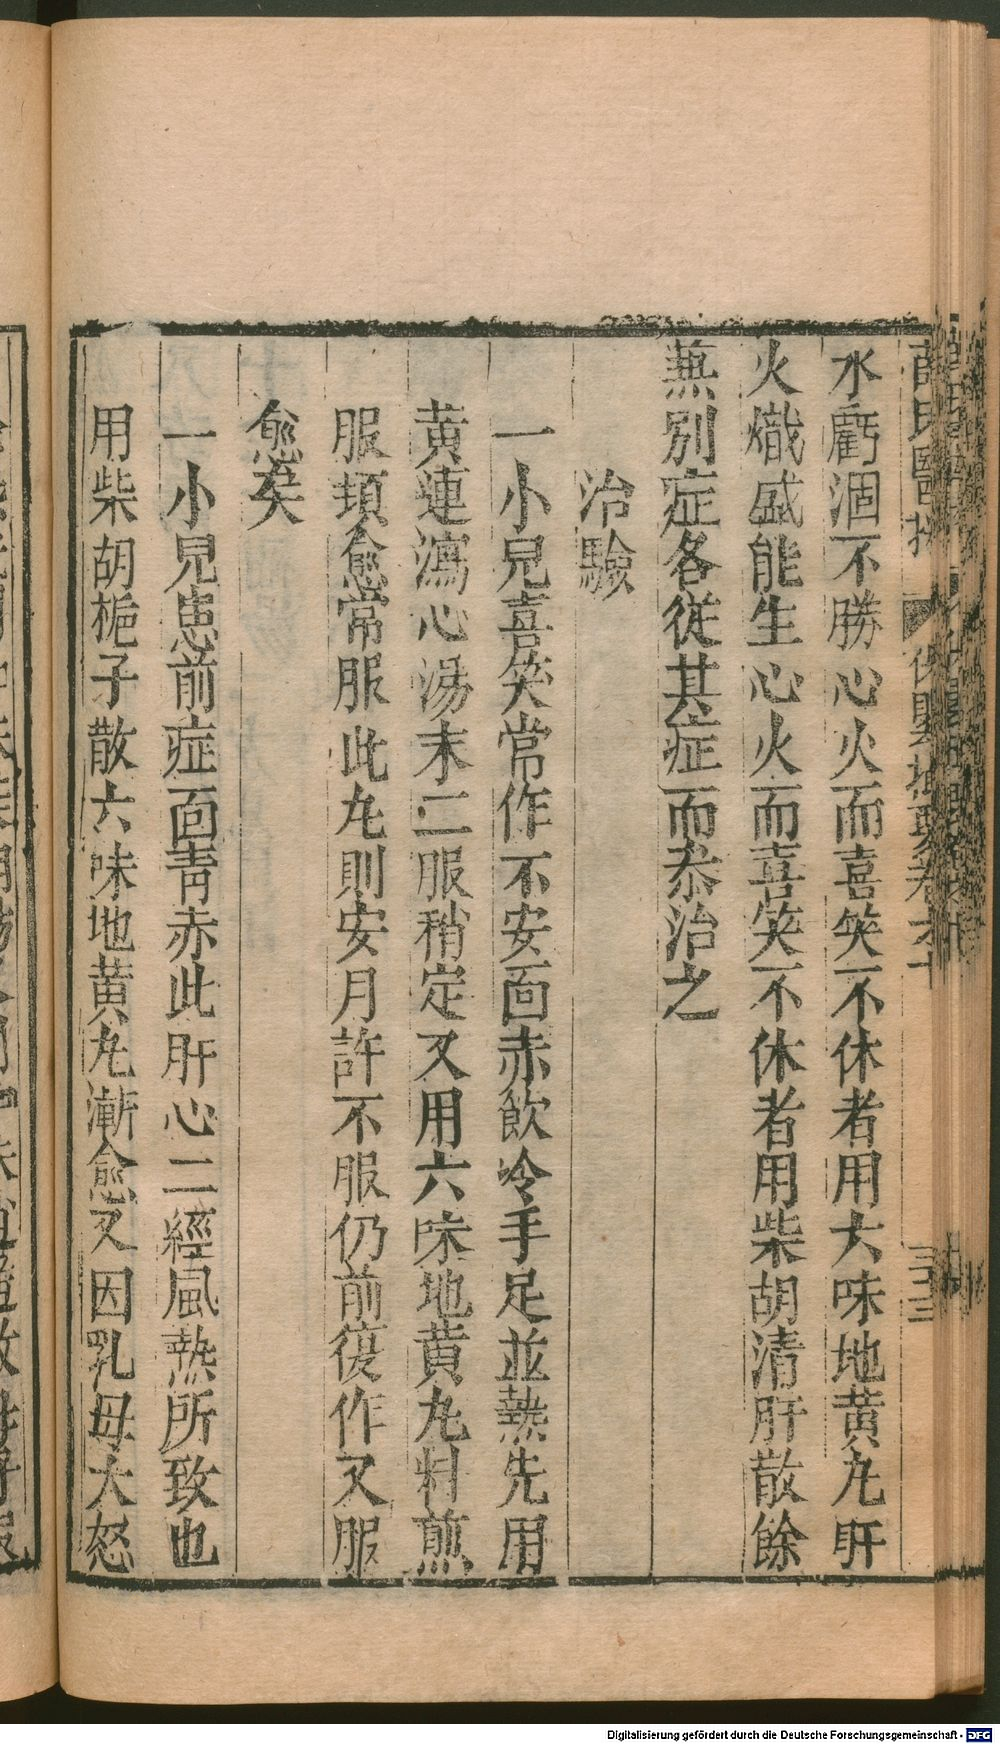 水虧涸不勝心火而喜笑不休者用六味地黄丸肝
火熾盛能生心火而喜笑不休者用柴胡清肝散餘
無別症各從其症而叅治之
治驗
一小兒喜笑常作不安面赤飲冷手足並熱先用
黄連瀉心湯末二服稍定又用六味地黄丸料煎
服頓愈常服此丸則安月許不服仍前復作又服
愈矣
一小兒患前症面青赤此肝心二經風熱所致也
用柴胡梔子散六味地黄丸漸愈又因乳母大怒
Digitalisierung gefördert durch die Deutsche Forschungsgemeinschaft - DFG